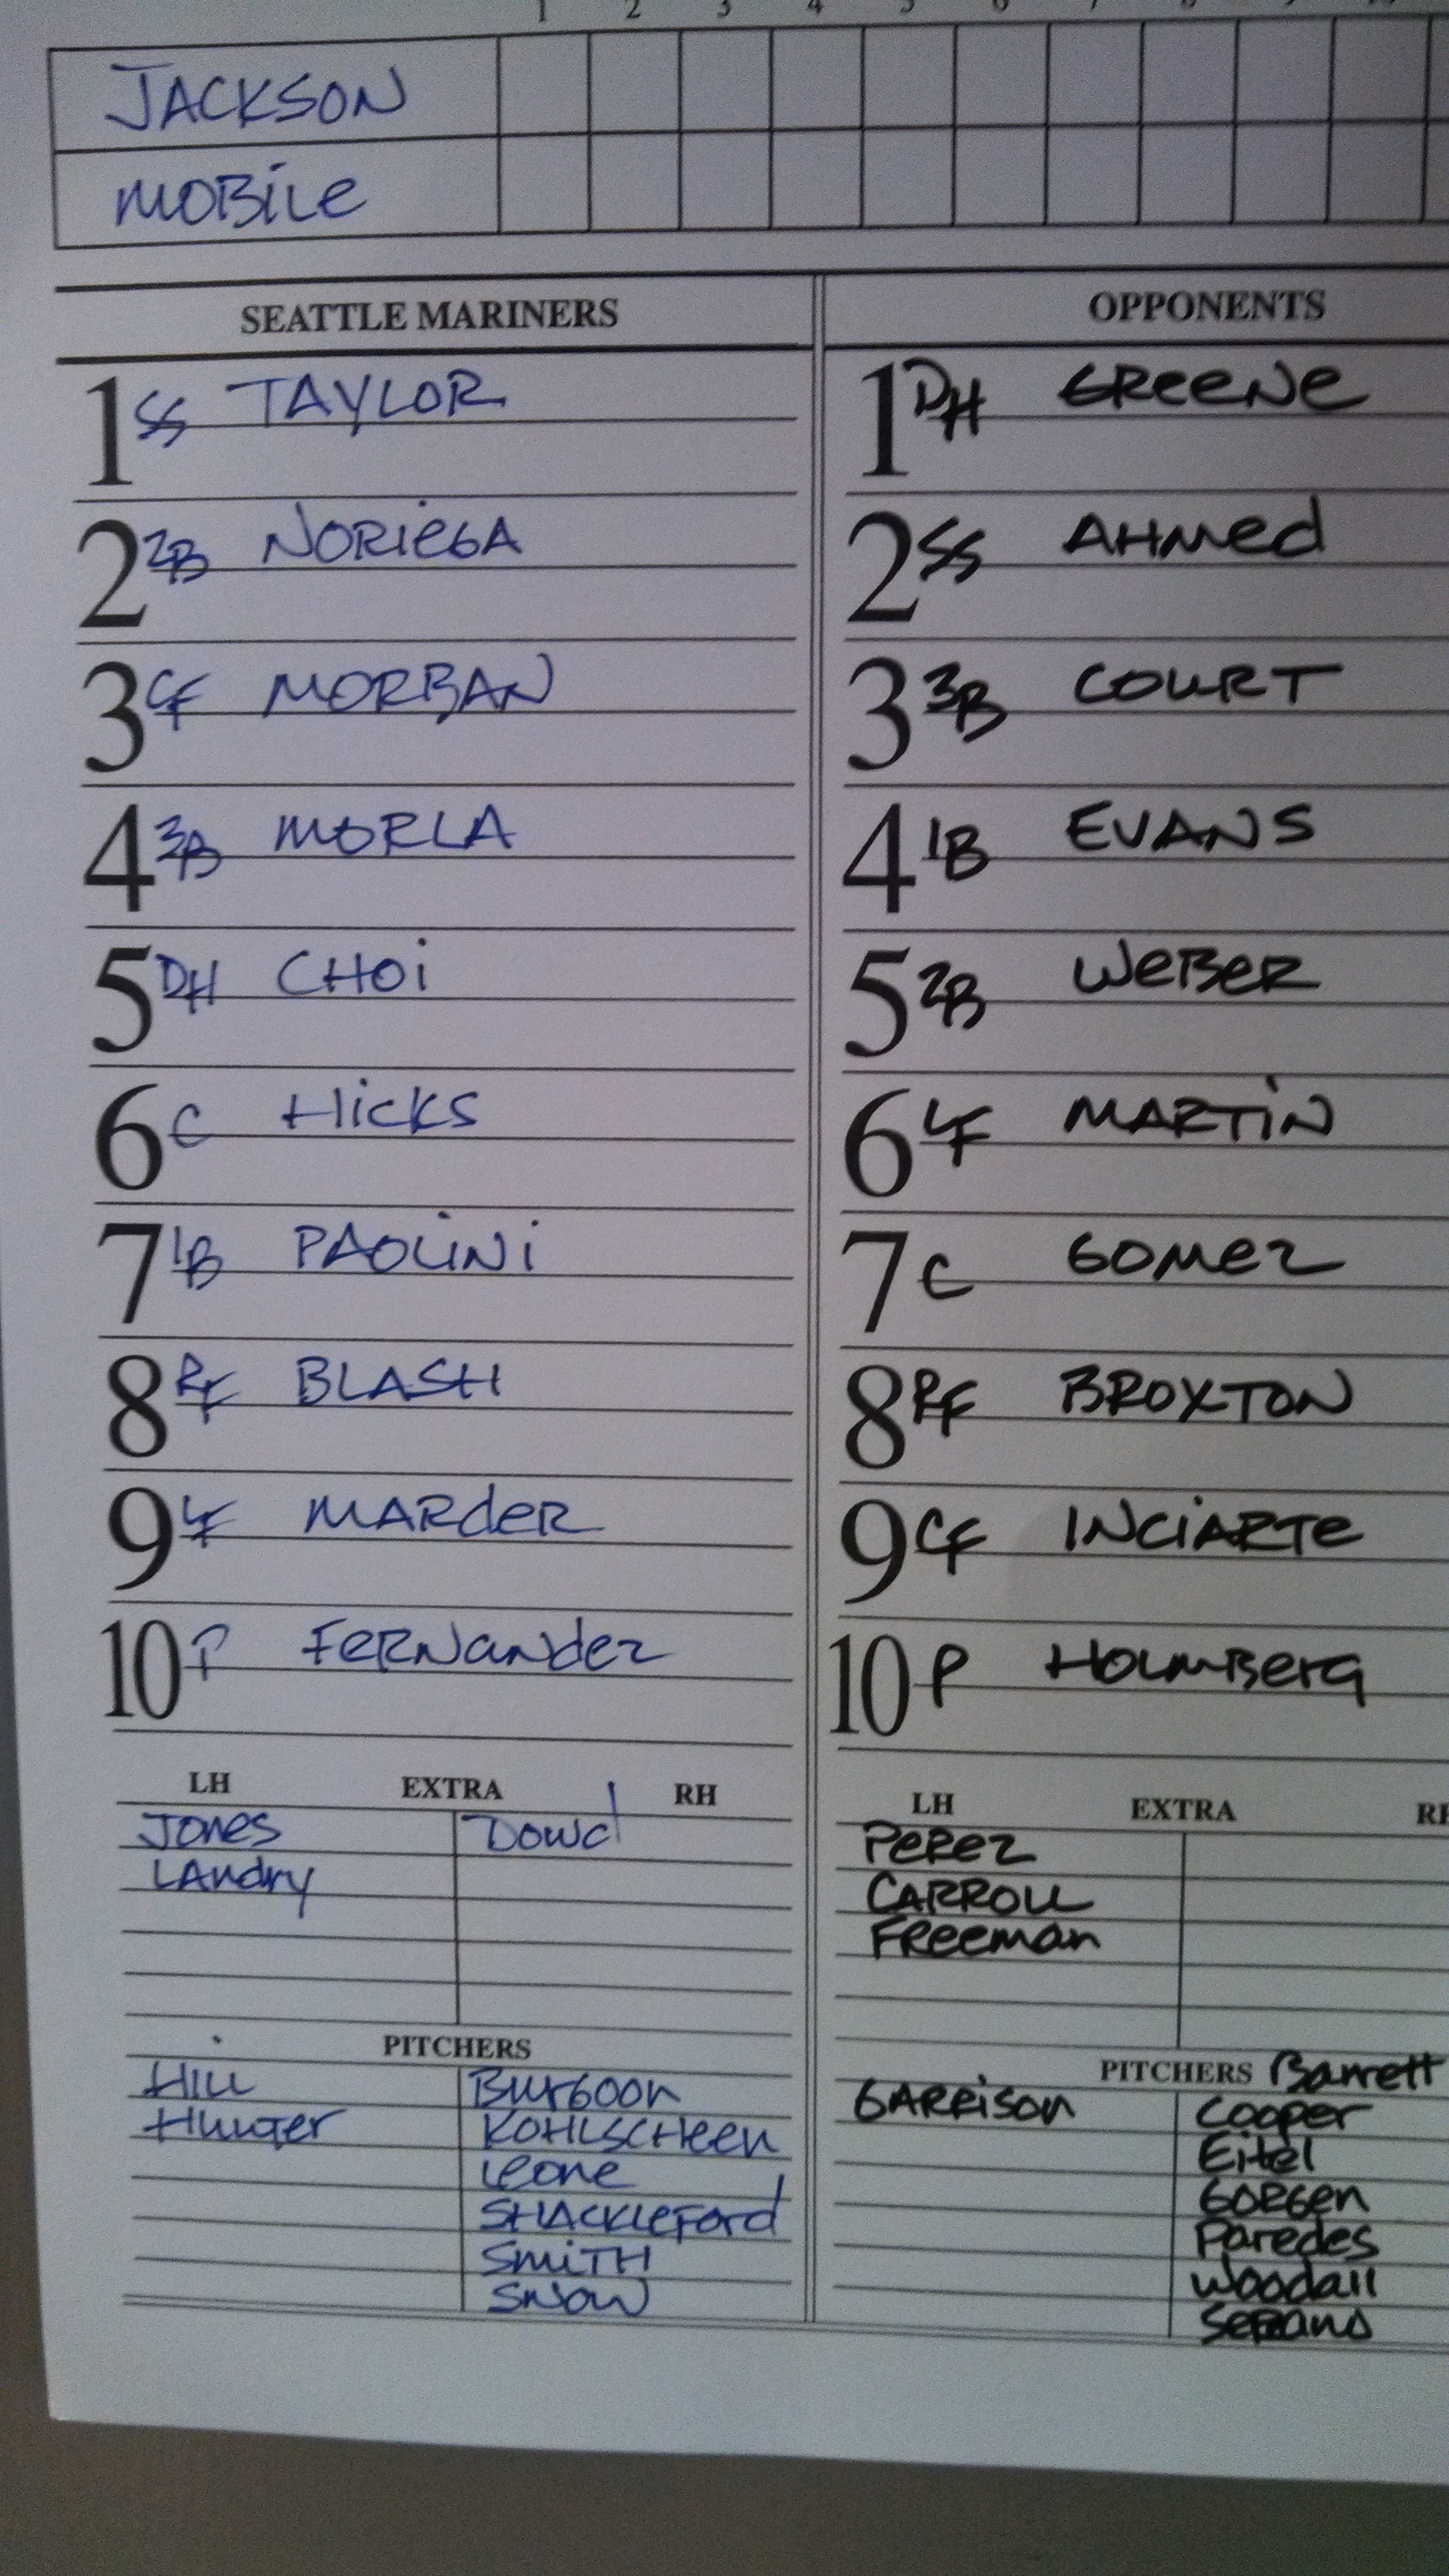 1 2 3 4 5 6 7 8 9 10
JACKSON
MOBiLe
SEATTLE MARINERS
1 SS TAYLOR
2 2B NORieGA
3 CF MORBAN
4 3B MORLA
5 DH CHOi
6 C HicKS
7 1B PAOLiNi
8 RF BLASH
9 LF MARdeR
10 P FeRNandez
LH EXTRA RH
Jones Dowd
LAndry
PITCHERS
Hill Burgoon
Hunter KOHLSCHeen
Leone
SHACKLeFord
SMiTH
SNOW
OPPONENTS
1 DH GReeNe
2 SS AHMed
3 3B COURT
4 1B EVANS
5 2B WeBeR
6 LF MARTiN
7 C GOMez
8 RF BROXTON
9 CF INCiARTe
10 P HOLMBerg
LH EXTRA
PeRez
CARROLL
FReeman
PITCHERS Barrett
GARRison Cooper
Eitel
GORGen
Paredes
Woodall